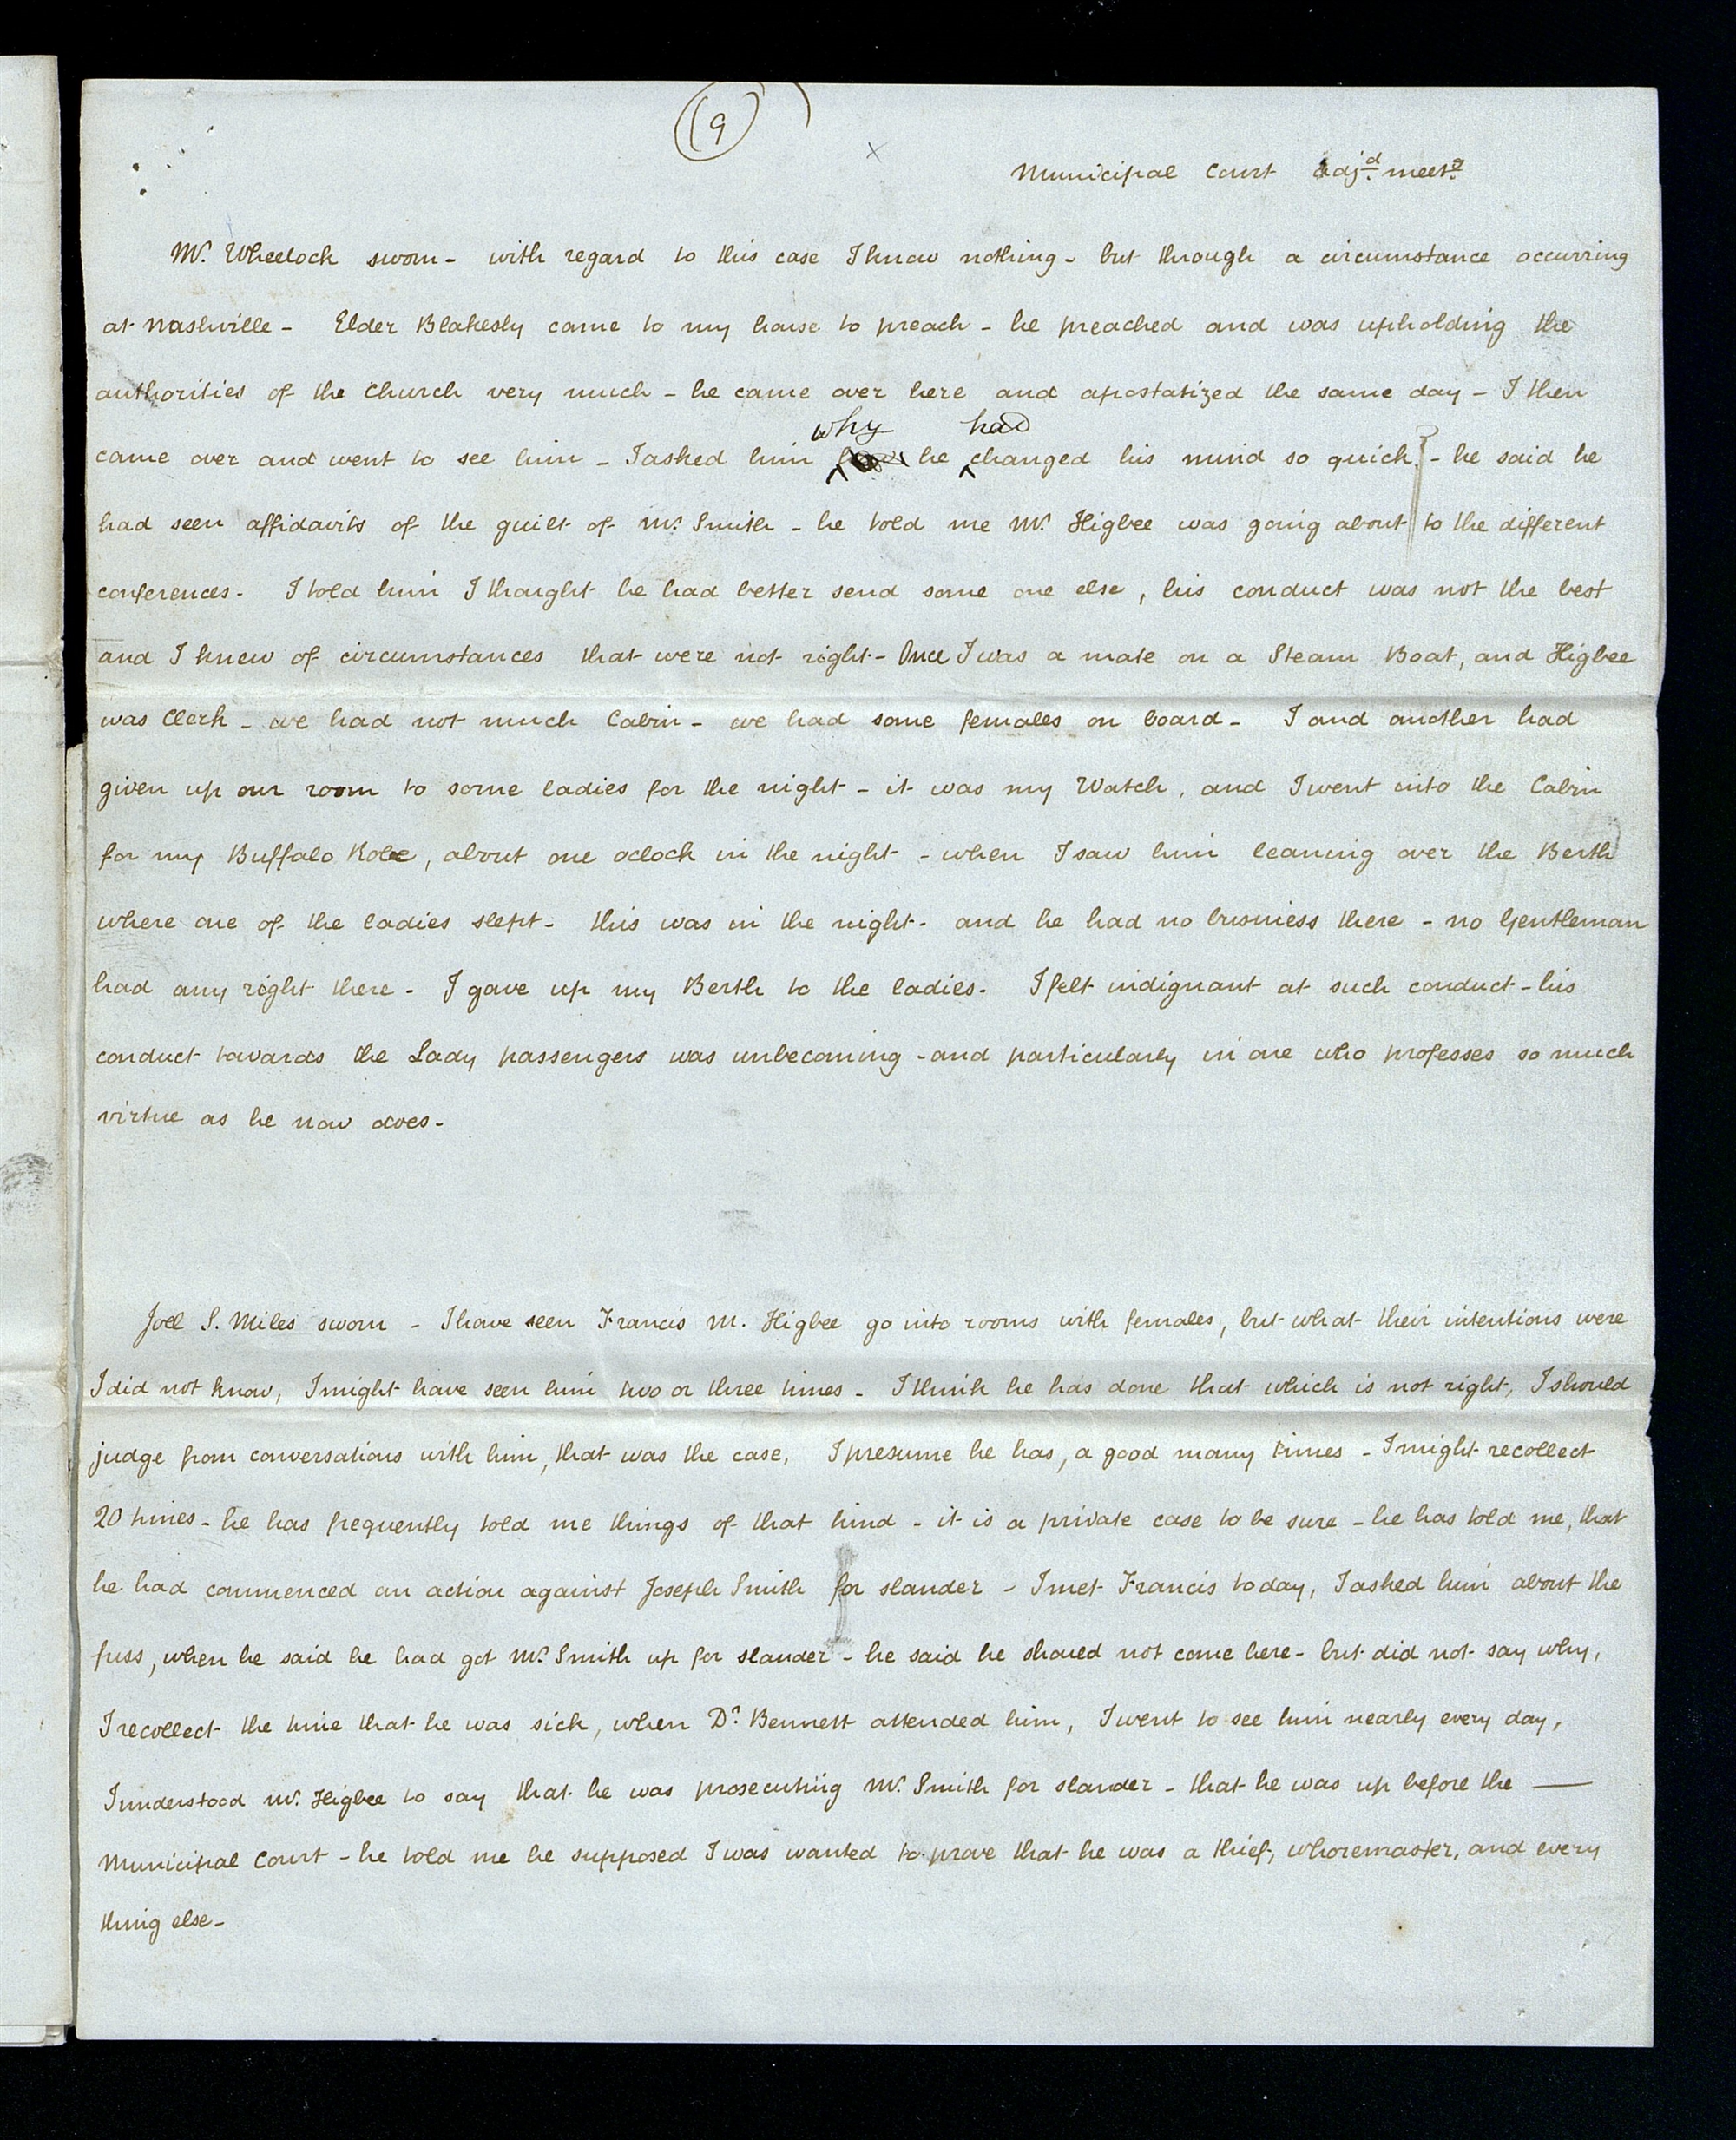 (9)
Municipal Court adjd. meetg.
Mr. Wheelock sworn - with regard to this case I know nothing - but through a circumstance occurring
at Nashville - Elder Blakesly came to my house to preach - he preached and was upholding the
authorities of the Church very much - he came over here and apostatized the same day - I then
why had
came over and went to see him - I asked him he changed his mind so quick. - he said he
had seen affidavits of the guilt of Mr. Smith - he told me Mr. Higbee was going about to the different
conferences. I told him I thought he had better send some one else, his conduct was not the best
and I knew of circumstances that were not right - Once I was a mate on a Steam Boat, and Higbee
was Clerk - we had not much Cabin - we had some females on board - I and another had
given up our room to some ladies for the night - it was my Watch, and I went into the Cabin
for my Buffalo Robe, about one oclock in the night - when I saw him leaning over the Berth
where one of the ladies slept - this was in the night - and he had no business there - no Gentleman
had any right there - I gave up my Berth to the ladies - I felt indignant at such conduct - his
conduct towards the Lady passengers was unbecoming - and particularly in one who professes so much
virtue as he now does -
Joel S. Miles sworn - I have seen Francis M. Higbee go into rooms with females, but what their intentions were
I did not know, I might have seen him two or three times - I think he has done that which is not right, I should
judge from conversations with him, that was the case, I presume he has, a good many times - I might recollect
20 times - he has frequently told me things of that kind - it is a private case to be sure - he has told me, that
he had commenced an action against Joseph Smith for slander - I met Francis today, I asked him about the
fuss, when he said he had got Mr. Smith up for slander - he said he should not come here - but did not say why,
I recollect the time that he was sick, when Dr. Bennett attended him, I went to see him nearly every day,
I understood Mr. Higbee to say that he was prosecuting Mr. Smith for slander - that he was up before the —
Municipal Court - he told me he supposed I was wanted to prove that he was a thief, whoremaster, and every
thing else -